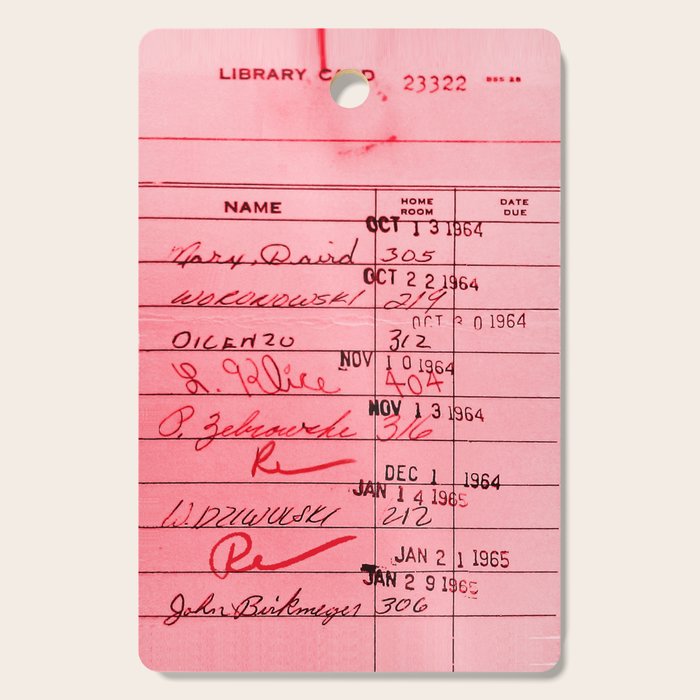 LIBRARY CARD 23322
NAME HOME ROOM DATE DUE
OCT 13 1964
Mary, Daird 305
OCT 22 1964
WORONOWSKI 219
OCT 30 1964
DICENZO 312
NOV 10 1964
L. Klice 404
NOV 13 1964
P. Zebrowske 316
Re
DEC 1 1964
JAN 14 1965
W. DZIWULSKI 212
Re
JAN 21 1965
JAN 29 1965
John Birkmeyer 306